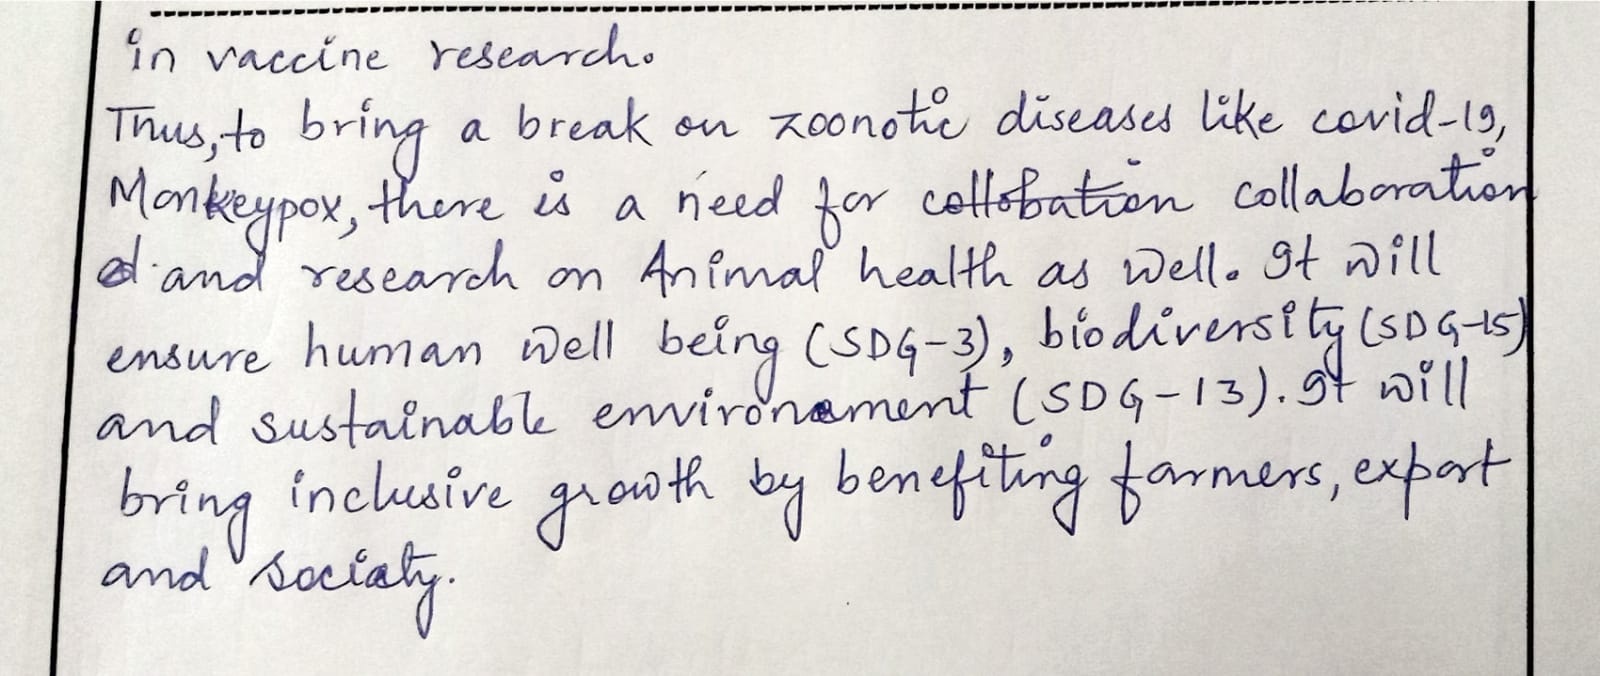 in vaccine research.
Thus, to bring a break on zoonotic diseases like covid-19,
Monkeypox, there is a need for collobation collaboration
and research on Animal health as well. It will
ensure human well being (SDG-3), biodiversity (SDG-15)
and sustainable environament (SDG-13). It will
bring inclusive growth by benefiting farmers, export
and society.